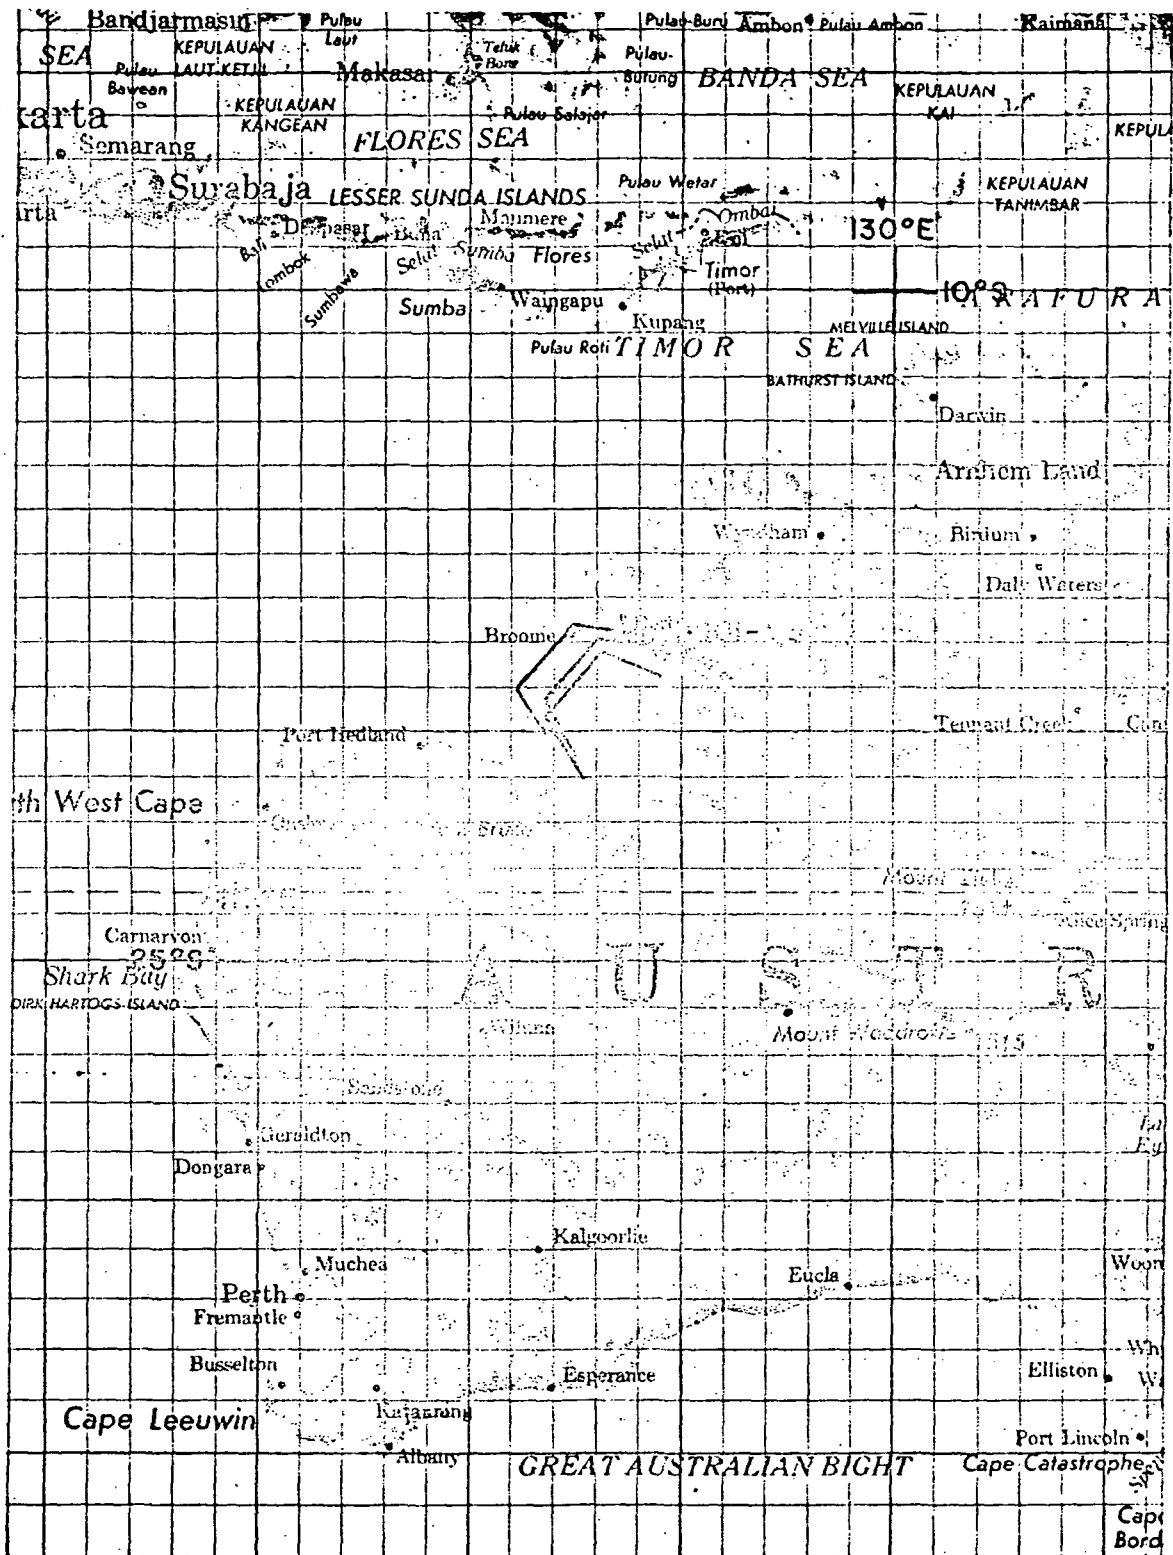 Bandjarmasin
Pulau
Laut
Pulau Buru
Ambon
Pulau Ambon
Kaimana
SEA
KEPULAUAN
LAUT KETJIL
Teluk
Bone
Pulau
Butung
BANDA SEA
Pulau
Bawean
Makasar
KEPULAUAN
KAI
karta
KEPULAUAN
KANGEAN
Pulau Salajar
FLORES SEA
KEPULA
Semarang
Surabaja
LESSER SUNDA ISLANDS
Pulau Wetar
KEPULAUAN
TANIMBAR
arta
Maumere
Ombai
130°E
Bali
Denpasar
Bima
Selat
Sumba
Flores
Selat
Lombok
Sumbawa
Timor
(Port)
Sumba
Waingapu
Kupang
10°S
ARAFURA
MELVILLE ISLAND
Pulau Roti
TIMOR SEA
BATHURST ISLAND
Darwin
Arnhem Land
Wyndham
Birdum
Daly Waters
Broome
Port Hedland
Tennant Creek
th West Cape
Mount
Alice Spring
Carnarvon
25°S
Shark Bay
DIRK HARTOGS ISLAND
A U S T R
Wiluna
Mount Woodroffe
1515
Sandstone
Geraldton
Dongara
Kalgoorlie
Muchea
Eucla
Woom
Perth
Fremantle
Busselton
Esperance
Elliston
Wh
Cape Leeuwin
Albany
Port Lincoln
GREAT AUSTRALIAN BIGHT
Cape Catastrophe
Cape
Bord